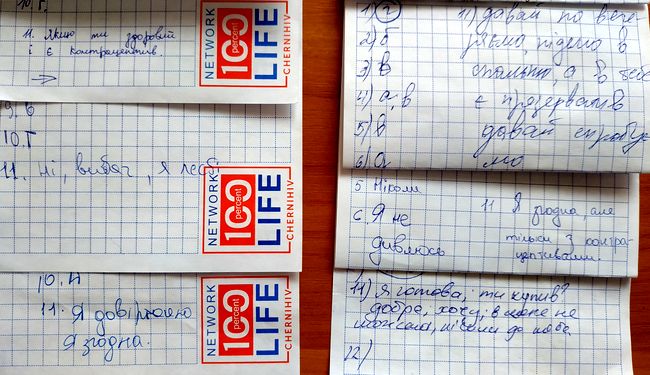 10. Г.
11. Якщо ти здоровий
і є контрацептив.
NETWORK
100
percent
LIFE
CHERNIHIV
9. б
10. Г
11. Ні, вибач, я
NETWORK
100
percent
LIFE
CHERNIHIV
11. Я довіряю
Я згодна.
NETWORK
100
percent
LIFE
CHERNIHIV
1) г
2) б
3) в
4) а, в
5) в
6) а
11) давай по вече-
ряємо, підемо в
спальню, а в тебе
є презерватив
давай спробує
мо.
5 Ніколи
6. Я не
дивлюсь
11 Я згодна, але
тільки з контра-
цептивами.
11) Я готова, ти купив?
добре, хочу, в мене не
12)